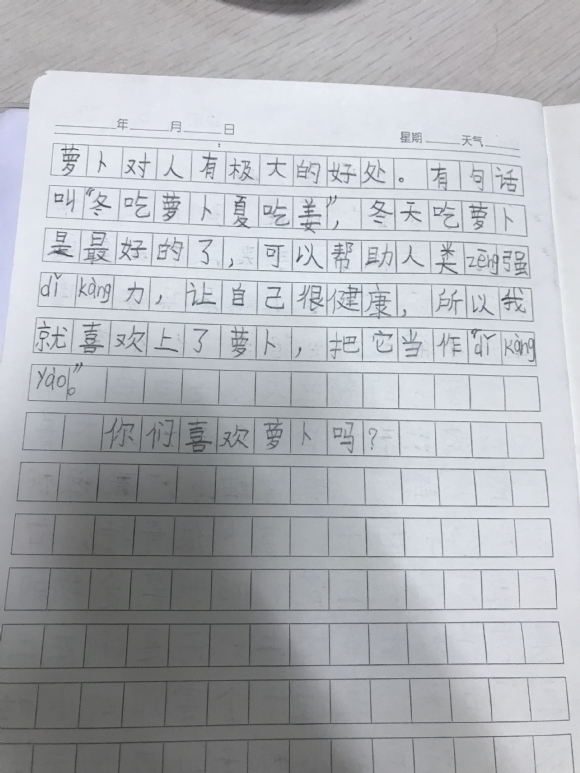 年 月 日 星期 天气
萝卜对人有极大的好处。有句话
叫“冬吃萝卜夏吃姜”，冬天吃萝卜
是最好的了，可以帮助人类zēng强
dǐ kàng力，让自己很健康，所以我
就喜欢上了萝卜，把它当作“dǐ kàng
yào。”
你们喜欢萝卜吗？